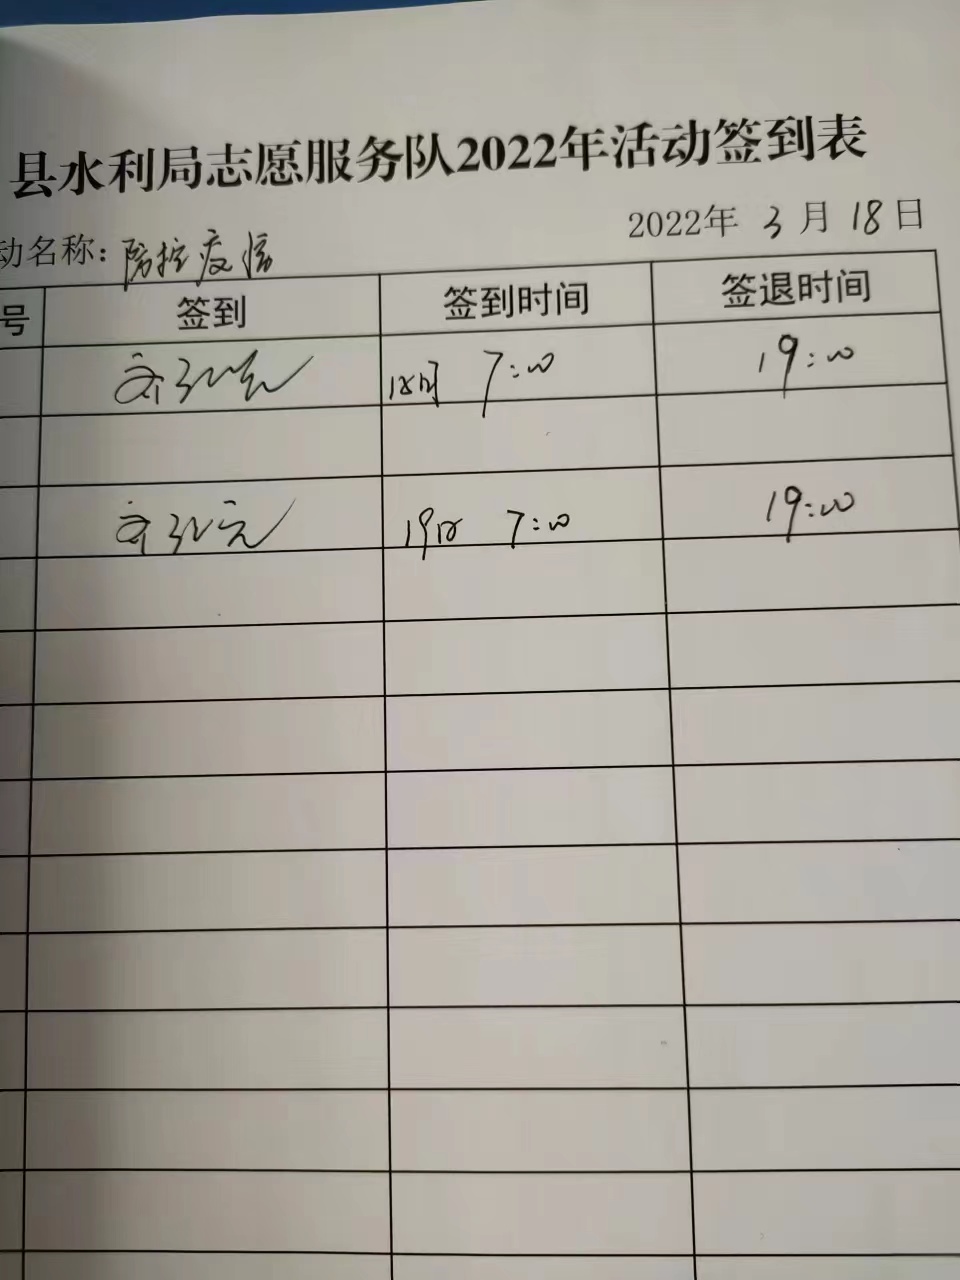 县水利局志愿服务队2022年活动签到表
动名称：防控疫情 2022年 3月18日
号 签到 签到时间 签退时间
18日 7:00 19:00
19日 7:00 19:00